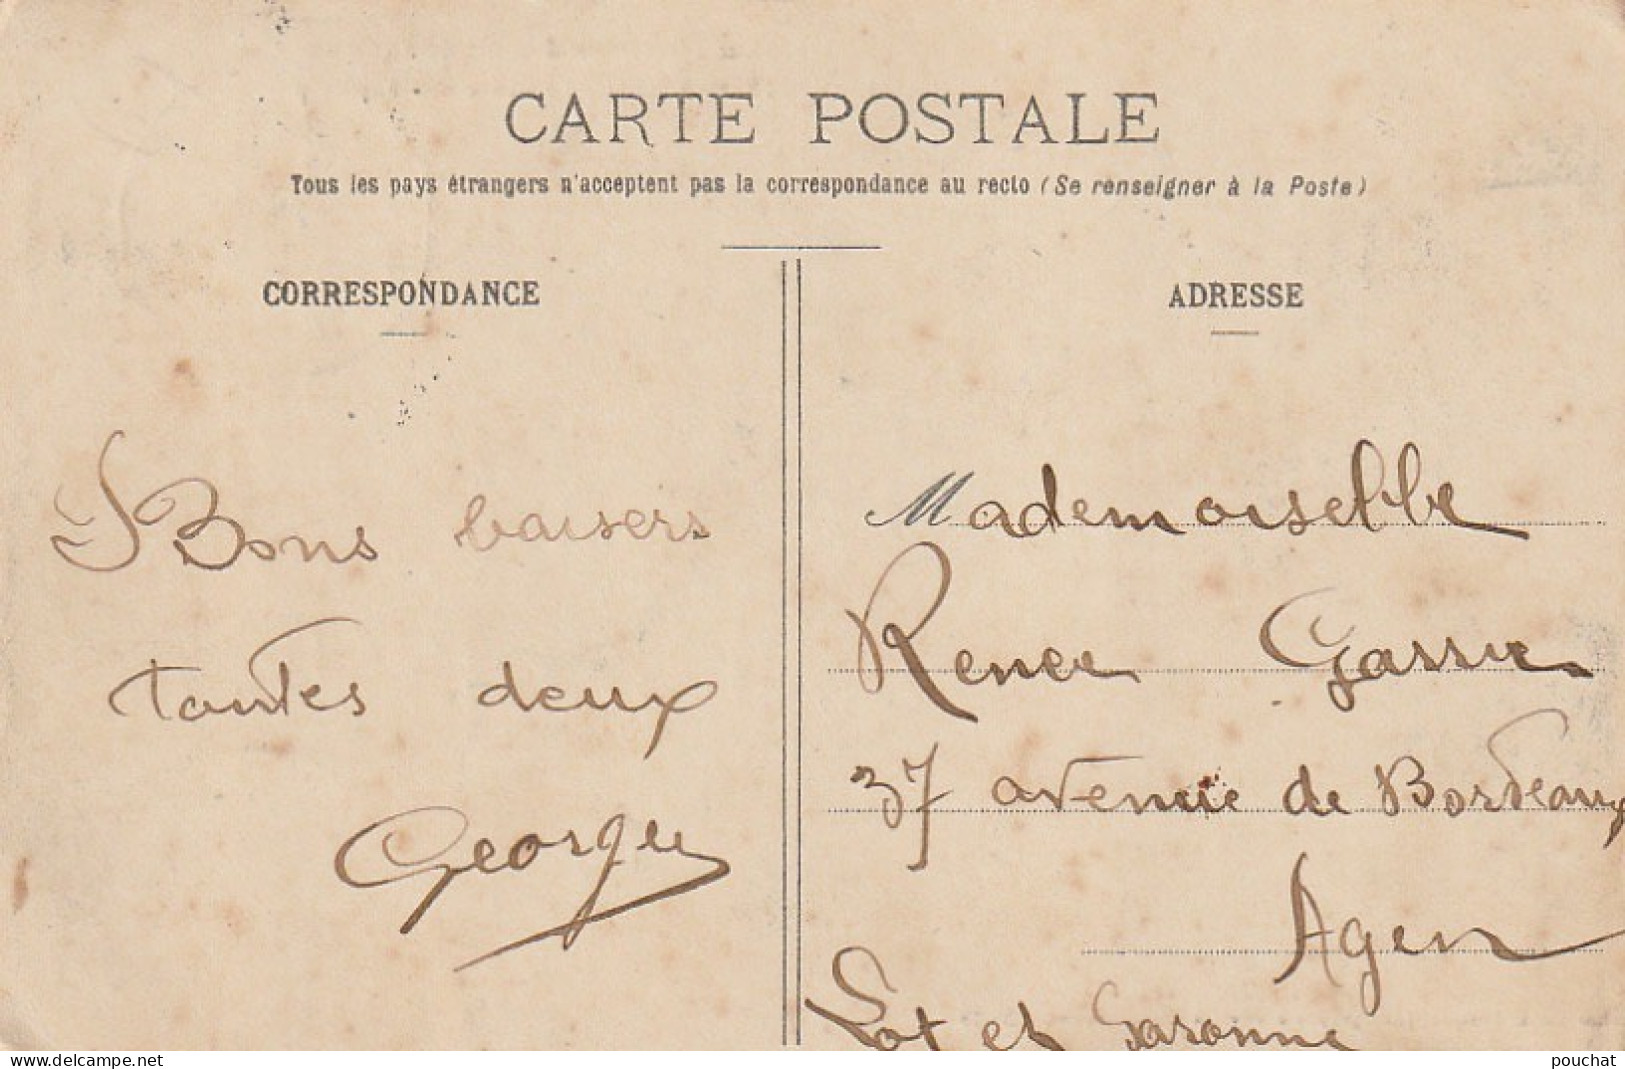 CARTE POSTALE
Tous les pays étrangers n'acceptent pas la correspondance au recto (Se renseigner à la Poste)
CORRESPONDANCE
Bons baisers
toutes deux
Georges
ADRESSE
Mademoiselle
Renée
37 avenue de Bordeaux
Agen
Lot et Garonne
www.delcampe.net
pouchat